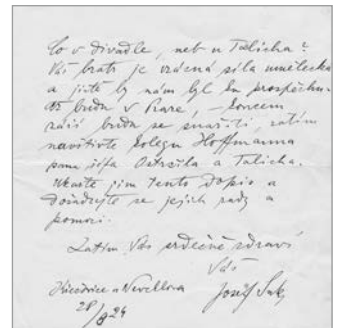 Co v divadle, neb u Talicha?
Váš bratr je vzácná síla umělecká
a jistě by nám byl ku prospěchu.
Až budu v Praze, – koncem
září budu se snažiti, zatím
navštivte kolegu Hoffmanna
pana šéfa Ostrčila a Talicha.
Ukažte jim tento dopis a
dožádejte se jejich rady a
pomoci.
Zatím Vás srdečně zdraví
Váš
Josef Suk
Křečovice u Neveklova
28/8 24